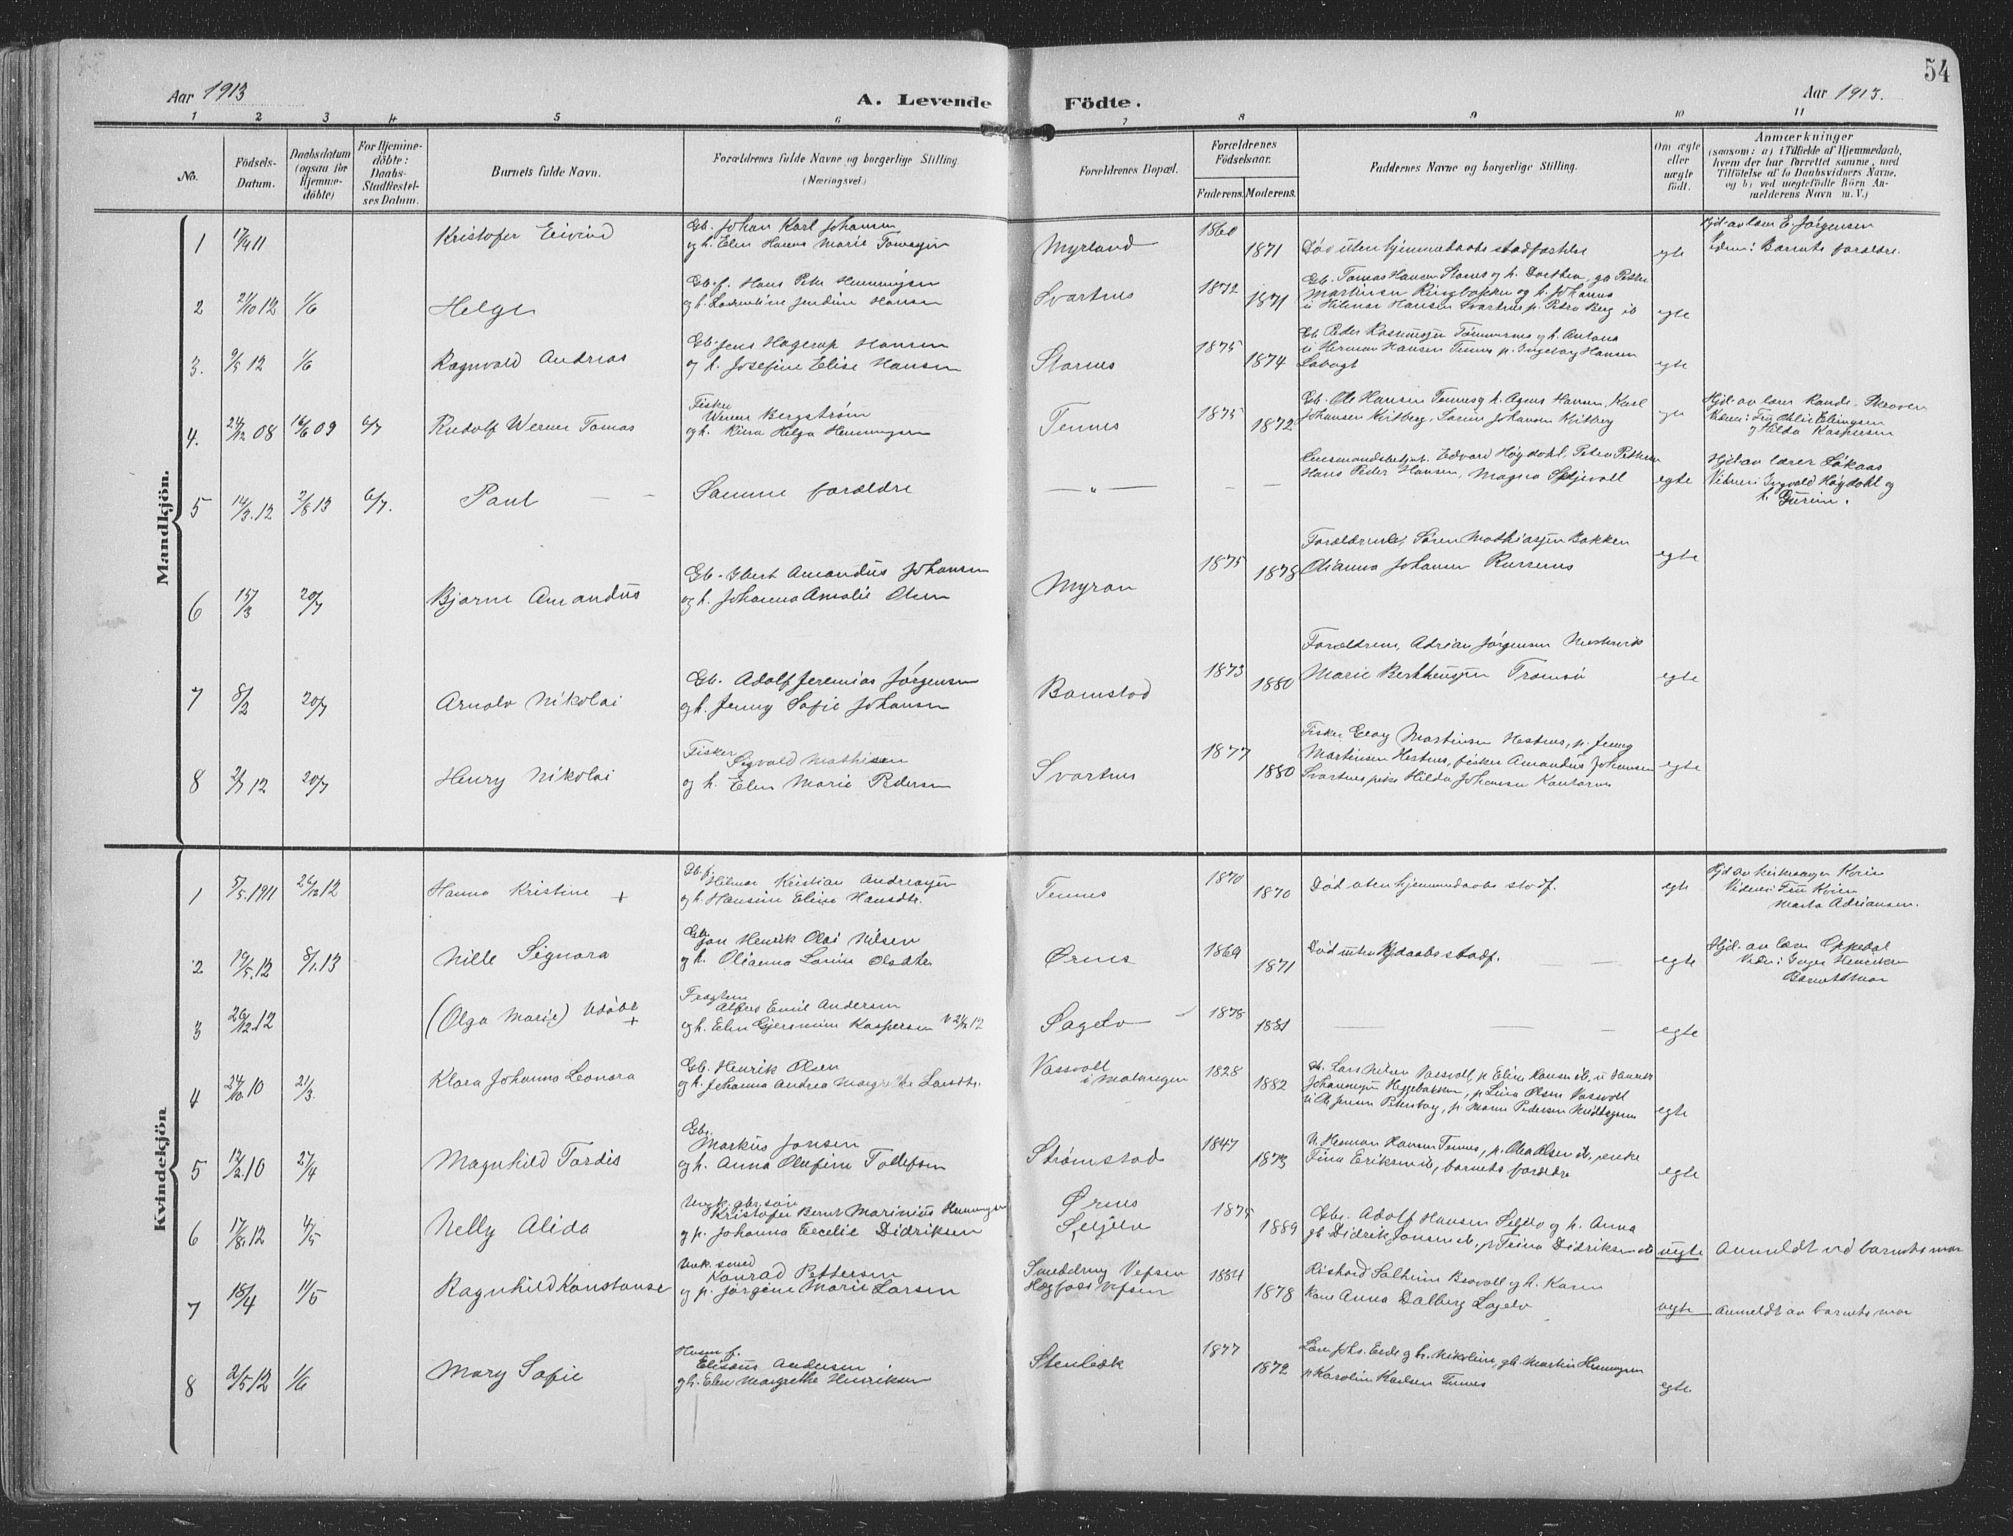 54
Aar 1913
A. Levende
Födte.
Aar 1913.
1 2 3 4 5 6 7 8 9 10 11
No.
Födsels-
Datum.
Daabsdatum
(ogsaa for
Hjemme-
döbte)
For Hjemme-
döbte:
Daabs-
Stadfæstel-
ses Datum.
Barnets fulde Navn.
Forældrenes fulde Navne og borgerlige Stilling.
(Næringsvei.)
Forældrenes Bopæl.
Forældrenes
Födselsaar.
Faderens. Moderens.
Faddernes Navne og borgerlige Stilling.
Om ægte
eller
uægte
født.
Anmærkninger
(saasom: a) i Tilfælde af Hjemmedaab,
hvem der har forrettet samme, med
Tilföielse af to Daabsvidners Navne,
og b) ved uægtefödte Börn An-
melderens Navn m. V.)
Mandkjön.
1
Kristofer Eivind
Gb. Johan Karl Johansen
og h. Elen Hanna Marie
Myrland
1860
1871
Død uten hjemmedaabs stadfæstelse
egte
Hjd. av lærer E. Jørgensen
Barnets forældre.
2 21/10 12 1/6
Helge
Gb. f. Hans Peter Henningsen
og h. Laurentine Jendine Hansen
Svartnes
1872
1871
Gb. Tomas Hansen Stornes og h. Dorthea, gb. Peder
Martinsen og h. Johanna
u. Hilmar Hansen Svartnes p. Petra Berg ib
egte
3. 9/5 12 1/6
Ragnvald Andreas
Gb. Jens Hagerup Hansen
og h. Josefine Elise Hansen
Stornes
1875
1874
Gb. Peder Rasmussen Tømmernes og h. Antona
u. Herman Hansen Tennes p. Ingeborg Hansen
egte
4. 24/12 08 16/6 09 6/7
Rudolf Werner Tomas
Fisker
Werner Bergstrøm
og h. Rina Helga Henningsen
Tennes
1875
1872
Gb. Ole Hansen Tennes og h. Agnes Hansen, Karl
Johansen Kvitberg, Sorine Johansen Kvitberg
egte
Hjd. av lærer Rande - Skroven
Vidner: Fru Otelie Ellingsen
og Hilda Kaspersen
5 14/3. 12 2/8 13 6/7.
Paul
Samme forældre
— " —
Lensmandsbetjent Edvard Høgdahl, Petra Pettersen
Hans Peder Hansen, Magna
egte
Hjd. av lærer Løkaas
Vidner: Ingvald Høgdahl og
h. Gurine.
6 15/3 20/7
Bjarne Amandus
Gb. Ebert Amandus Johansen
og h. Johanna Amalie Olsen
Myran
1875
1878
Forældrene, Søren Mathiassen Bakken
Olianna Johansen Russenes
egte
7 8/2 20/7
Arnold Nikolai
Gb. Adolf Jeremias Jørgensen
og h. Jenny Sofie Johansen
Bomstad
1873
1880
Forældrene, Adrian Jørgensen
Marie Bertheussen Tromsø
egte
8 2/7 12 20/7
Henry Nikolai
Fisker
Sigvald Mathisen
og h. Elen Marie Pedersen
Svartnes
1877
1880
Fisker Georg Martinsen Hestnes, p. Jenny
Martinsen Hestnes, fisker Amandus Johansen
Svartnes, pike Hilda Johansen Kantornes
egte
Kvindekjön
1 5/5. 1911 26/12. 12
Hanna Kristine +
Gb. f.
Hilmar Kristian Andreassen
og h. Hansine Eline Hansdtr.
Tennes
1870
1870
Død uten hjemmedaabs stadf.
egte
Hjd av kirkesanger Kvien
Vidner: Fru Kvien
Marta Adriansen.
2 19/5. 12 8/1. 13
Nille Signora
Gb.
Jon Henrik Olai Nilsen
og h. Olianna Lovise Olsdtr
Ørnes
1869
1871
Død uten hjdaabs stadf.
egte
Hjd. av lærer Oppedal
Vidn: Inger Henriksen
Barnets mor
3 26/12. 12
(Olga Marie) Udøbt
+
Alfred Emil Andersen
og h. Elen Gjersmine Kaspersen
Sagelv
1878
1881
egte
4 24/10 10 21/3
Klara Johanna Leonora
Gb. Henrik Olsen
og h. Johanna Andrea Margrethe Larsdtr.
Vassvoll
i Malangen
1828
1882
Gb. Lars Nilsen Vassvoll, p. Eline Hansen ib, u. Henrik
Johannessen Heggebakken, p. Lina Olsen Vassvoll
egte
5 12/2 10 27/4
Magnhild Tordis
Gb.
Markus Jonsen
og h. Anna Olufine Tollefsen
Strømstad
1847
1873
U. Herman Hansen Tennes, p. Olea Olsen ib, enke
Tina Eriksen ib, barnets forældre
egte
6 17/8 12 4/5
Nelly Alida
Ungk. gbr.søn
Kristofer Bernt Marinius Henningsen
og p. Johanna Cecelie Didriksen
Ørnes
Seljelv
1875
1889
Gbr. Adolf Hansen Seljelv og h. Anna
gb. Didrik Jonsen ib, p. Trina Didriksen ib
uegte
Anmeldt ved barnets mor
7 15/4 1/5
Ragnhild Konstanse
Unk. smed
Konrad Pettersen
og p. Jørgine Marie Larsen
Vefsen
Vefsen
1884
1878
Rikhard Solheim og h. Karen
Anna Dalberg Sagelv
uegte
anmeldt av barnets mor
8 2/5 12 1/6
Mary Sofie
Husm. f.
Elisæus Andersen
og h. Elen Margrethe Henriksen
Stenbæk
1877
1872
og h. Nikoline, gb. Martin Henningsen
p. Karoline Karlsen Tennes
egte